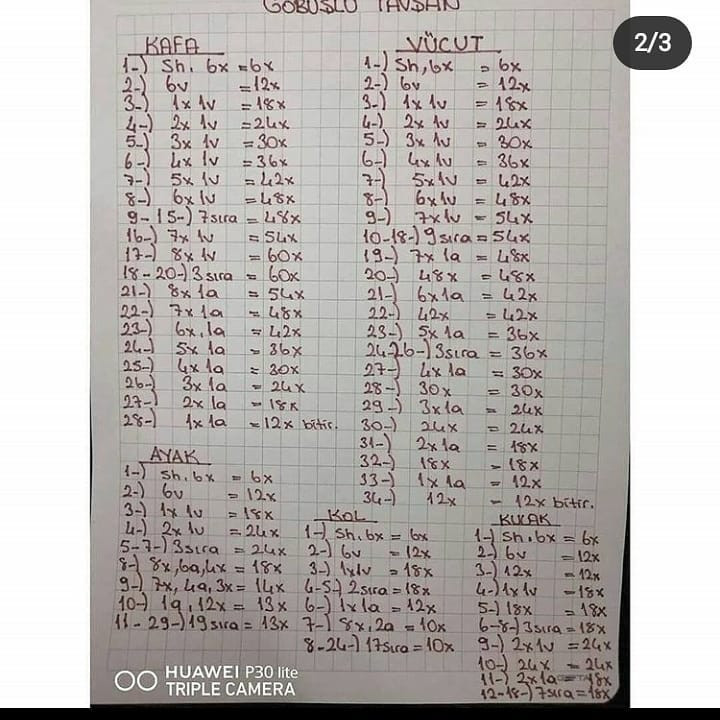 GÖBÜŞLÜ TAVŞAN
2/3
KAFA
1-) Sh. 6x =6x
2-) 6v =12x
3-) 1x 1v =18x
4-) 2x 1v =24x
5-) 3x 1v =30x
6-) 4x 1v =36x
7-) 5x 1v =42x
8-) 6x 1v =48x
9-15-) 7sıra =48x
16-) 7x 1v =54x
17-) 8x 1v =60x
18-20-) 3sıra = 60x
21-) 8x 1a =54x
22-) 7x 1a =48x
23-) 6x.1a =42x
24-) 5x 1a =36x
25-) 4x 1a =30x
26-) 3x 1a =24x
27-) 2x 1a =18x
28-) 1x 1a =12x bitir.
VÜCUT
1-) Sh, 6x = 6x
2-) 6v = 12x
3-) 1x 1v = 18x
4-) 2x 1v = 24x
5-) 3x 1v = 30x
6-) 4x 1v = 36x
7-) 5x1v = 42x
8-) 6x1v = 48x
9-) 7x1v = 54x
10-18-) 9 sıra = 54x
19-) 7x 1a = 48x
20-) 48x = 48x
21-) 6x1a = 42x
22-) 42x = 42x
23-) 5x 1a = 36x
24-26-) 3sıra = 36x
27-) 4x 1a = 30x
28-) 30x = 30x
29-) 3x1a = 24x
30-) 24x = 24x
31-) 2x1a = 18x
32-) 18x = 18x
33-) 1x 1a = 12x
34-) 12x = 12x bitir.
AYAK
1-) Sh. 6x = 6x
2-) 6v =12x
3-) 1x 1v =18x
4-) 2x 1v =24x
5-7-) 3sıra = 24x
8-) 8x, 6a, 4x = 18x
9-) 7x, 4a, 3x = 14x
10-) 1a, 12x = 13x
11-29-) 19sıra = 13x
KOL
1-) Sh. 6x = 6x
2-) 6v = 12x
3-) 1x1v = 18x
4-5-) 2sıra =18x
6-) 1x1a = 12x
7-) 8x, 2a = 10x
8-24-) 17sıra =10x
KULAK
1-) Sh. 6x = 6x
2-) 6v =12x
3-) 12x =12x
4-) 1x 1v =18x
5-) 18x =18x
6-8-) 3sıra =18x
9-) 2x1v =24x
10-) 24x = 24x
11-) 2x 1a = 18x
12-18-) 7sıra =18x
HUAWEI P30 lite
TRIPLE CAMERA